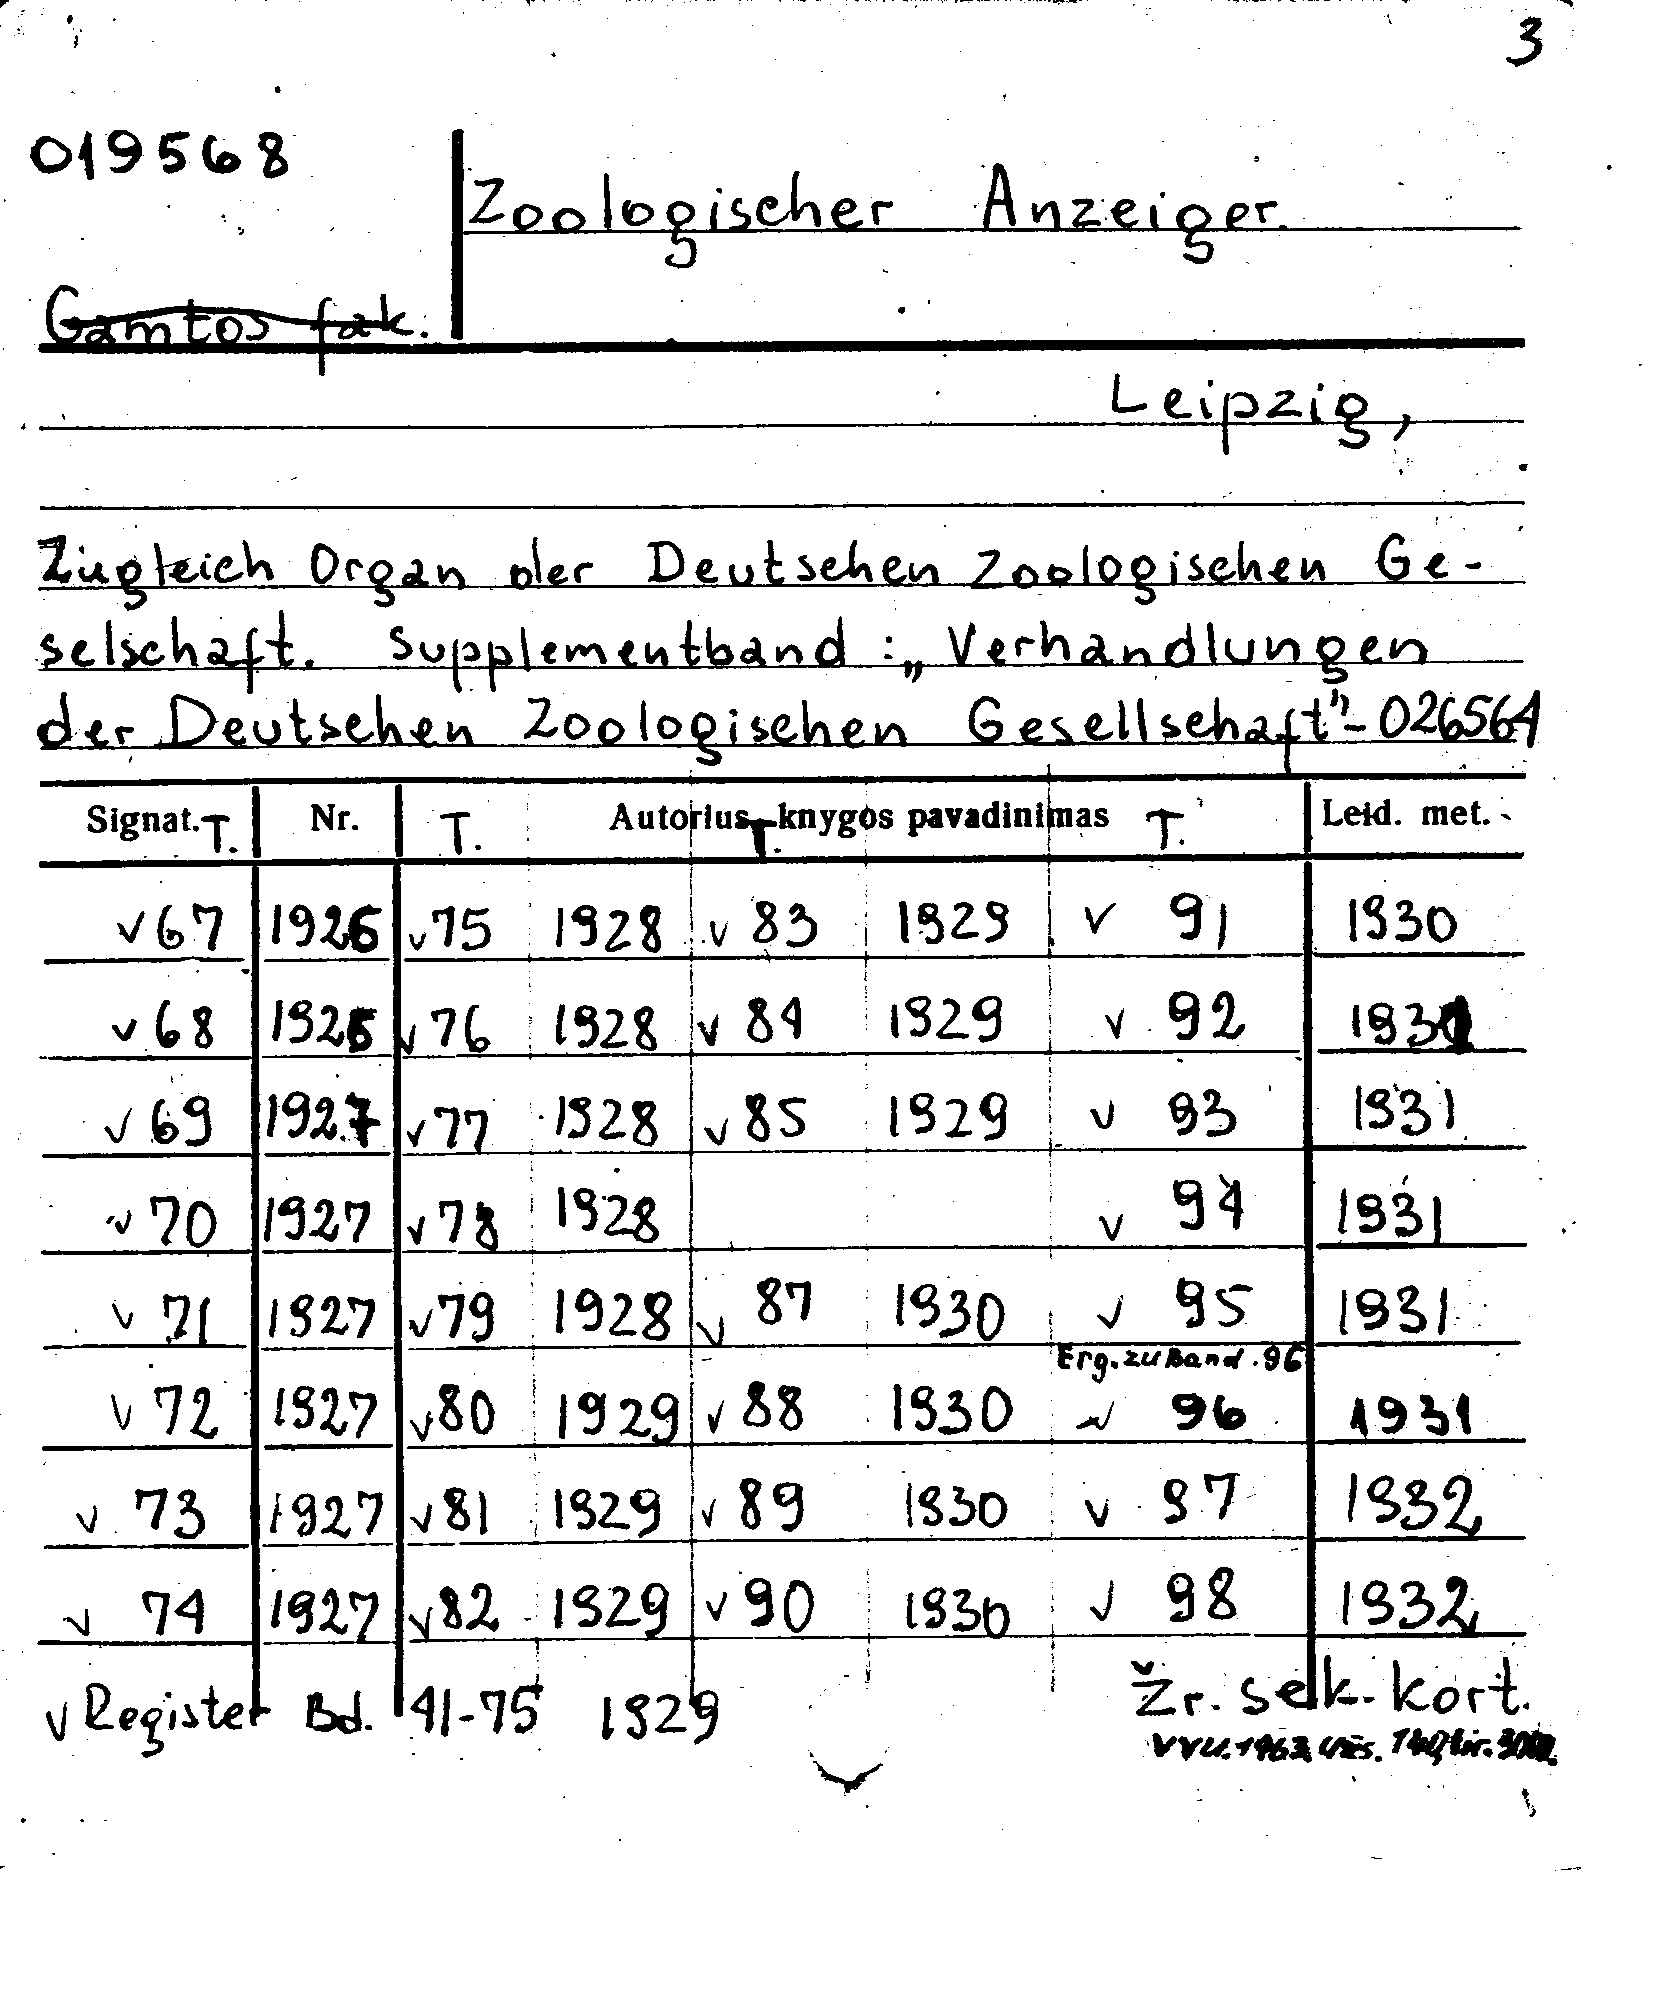 3
019568
Zoologischer Anzeiger.
Gamtos fak.
Leipzig,
Zugleich Organ der Deutschen Zoologischen Ge-
selschaft. Supplementband: „Verhandlungen
der Deutschen Zoologischen Gesellschaft" - 026564
Signat. T. Nr. T. Autorius, knygos pavadinimas T. T. Leid. met.
v 67 1926 v 75 1928 v 83 1929 v 91 1930
v 68 1926 v 76 1928 v 84 1929 v 92 1931
v 69 1927 v 77 1928 v 85 1929 v 93 1931
v 70 1927 v 78 1928 v 94 1931
v 71 1927 v 79 1928 v 87 1930 v 95 1931
Erg. zu Band. 96
v 72 1927 v 80 1929 v 88 1930 v 96 1931
v 73 1927 v 81 1929 v 89 1930 v 97 1932
v 74 1927 v 82 1929 v 90 1930 v 98 1932
v Register Bd. 41-75 1929
Žr. sek. kort.
VVU. 1963